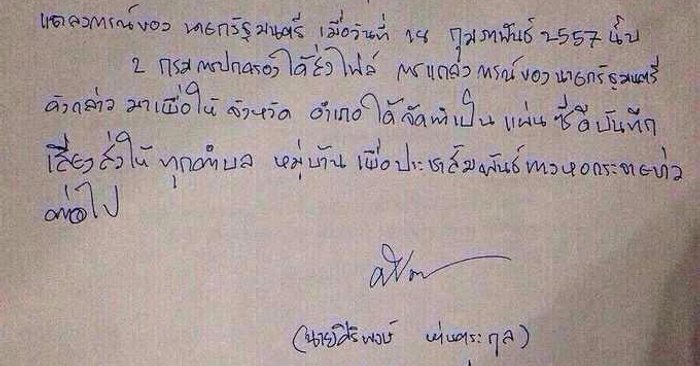 แถลงการณ์ของ นายกรัฐมนตรี เมื่อวันที่ 18 กุมภาพันธ์ 2557 นั้น
2 กรมการปกครองได้ส่งไฟล์ การแถลงการณ์ของนายกรัฐมนตรี
ดังกล่าว มาเพื่อให้ จังหวัด อำเภอ ได้จัดทำเป็น แผ่น ซีดีบันทึก
เสียงส่งให้ ทุกตำบล หมู่บ้าน เพื่อประชาสัมพันธ์ทางหอกระจายข่าว
ต่อไป
(นายศิริพงษ์ ห่านตระกูล)